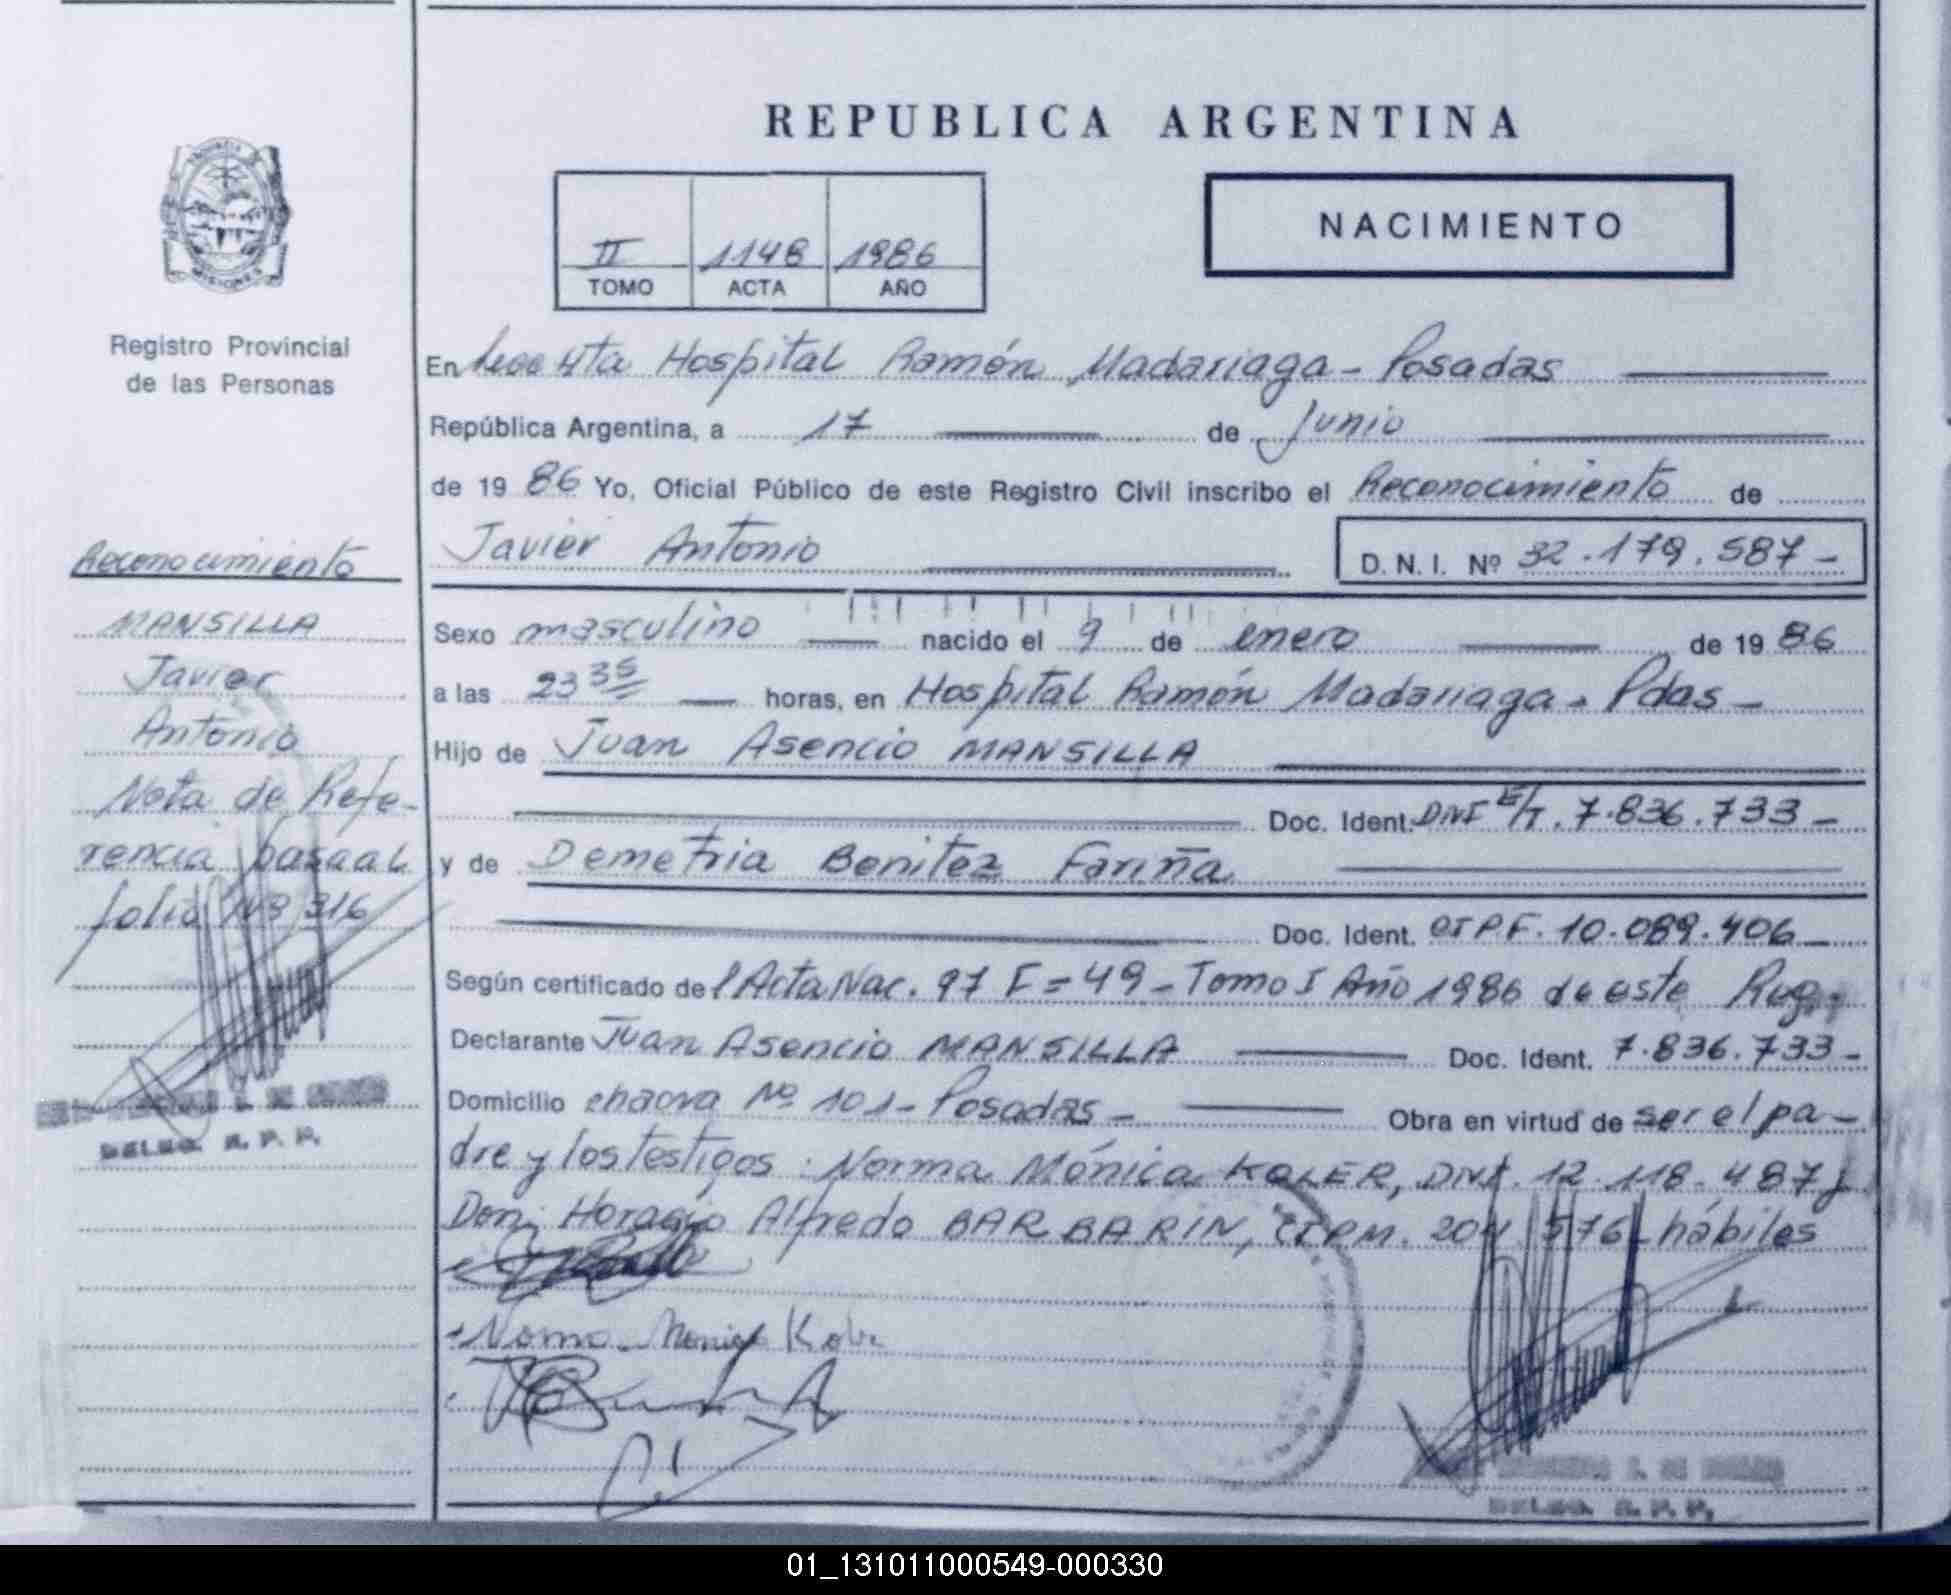 REPUBLICA ARGENTINA
II 1148 1986
TOMO ACTA AÑO
NACIMIENTO
PROVINCIA DE
MISIONES
Registro Provincial
de las Personas
Reconocimiento
MANSILLA
Javier
Antonio
Nota de Refe-
rencia pasaal
folio Nº 316
DELEG. R. P. P.
En Hospital Ramón Madariaga - Posadas
República Argentina, a 17 de Junio
de 1986 Yo, Oficial Público de este Registro Civil inscribo el Reconocimiento de
Javier Antonio D. N. I. Nº 32.179.587-
Sexo masculino nacido el 9 de enero de 1986
a las 23 35 horas, en Hospital Ramón Madariaga - Pdas -
Hijo de Juan Asencio MANSILLA
Doc. Ident. DNI E/T. 7.836.733 -
y de Demetria Benitez Fariña
Doc. Ident. CIPF. 10.089.406
Según certificado de l Acta Nac. 97 F=49 - Tomo I Año 1986 de este Reg.
Declarante Juan Asencio MANSILLA Doc. Ident. 7.836.733 -
Domicilio chacra Nº 101 - Posadas - Obra en virtud de ser el pa-
dre y los testigos: Norma Mónica KOLER, DNI. 12.118.487 y
Don; Horacio Alfredo BARBARIN, CIPM. 204.576 - hábiles
Norma Monica Koler
DELEG. R. P. P.
01_131011000549-000330